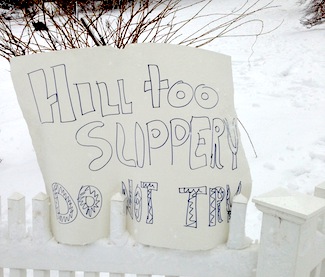 HILL too
SLIPPERY
DO NOT TRY